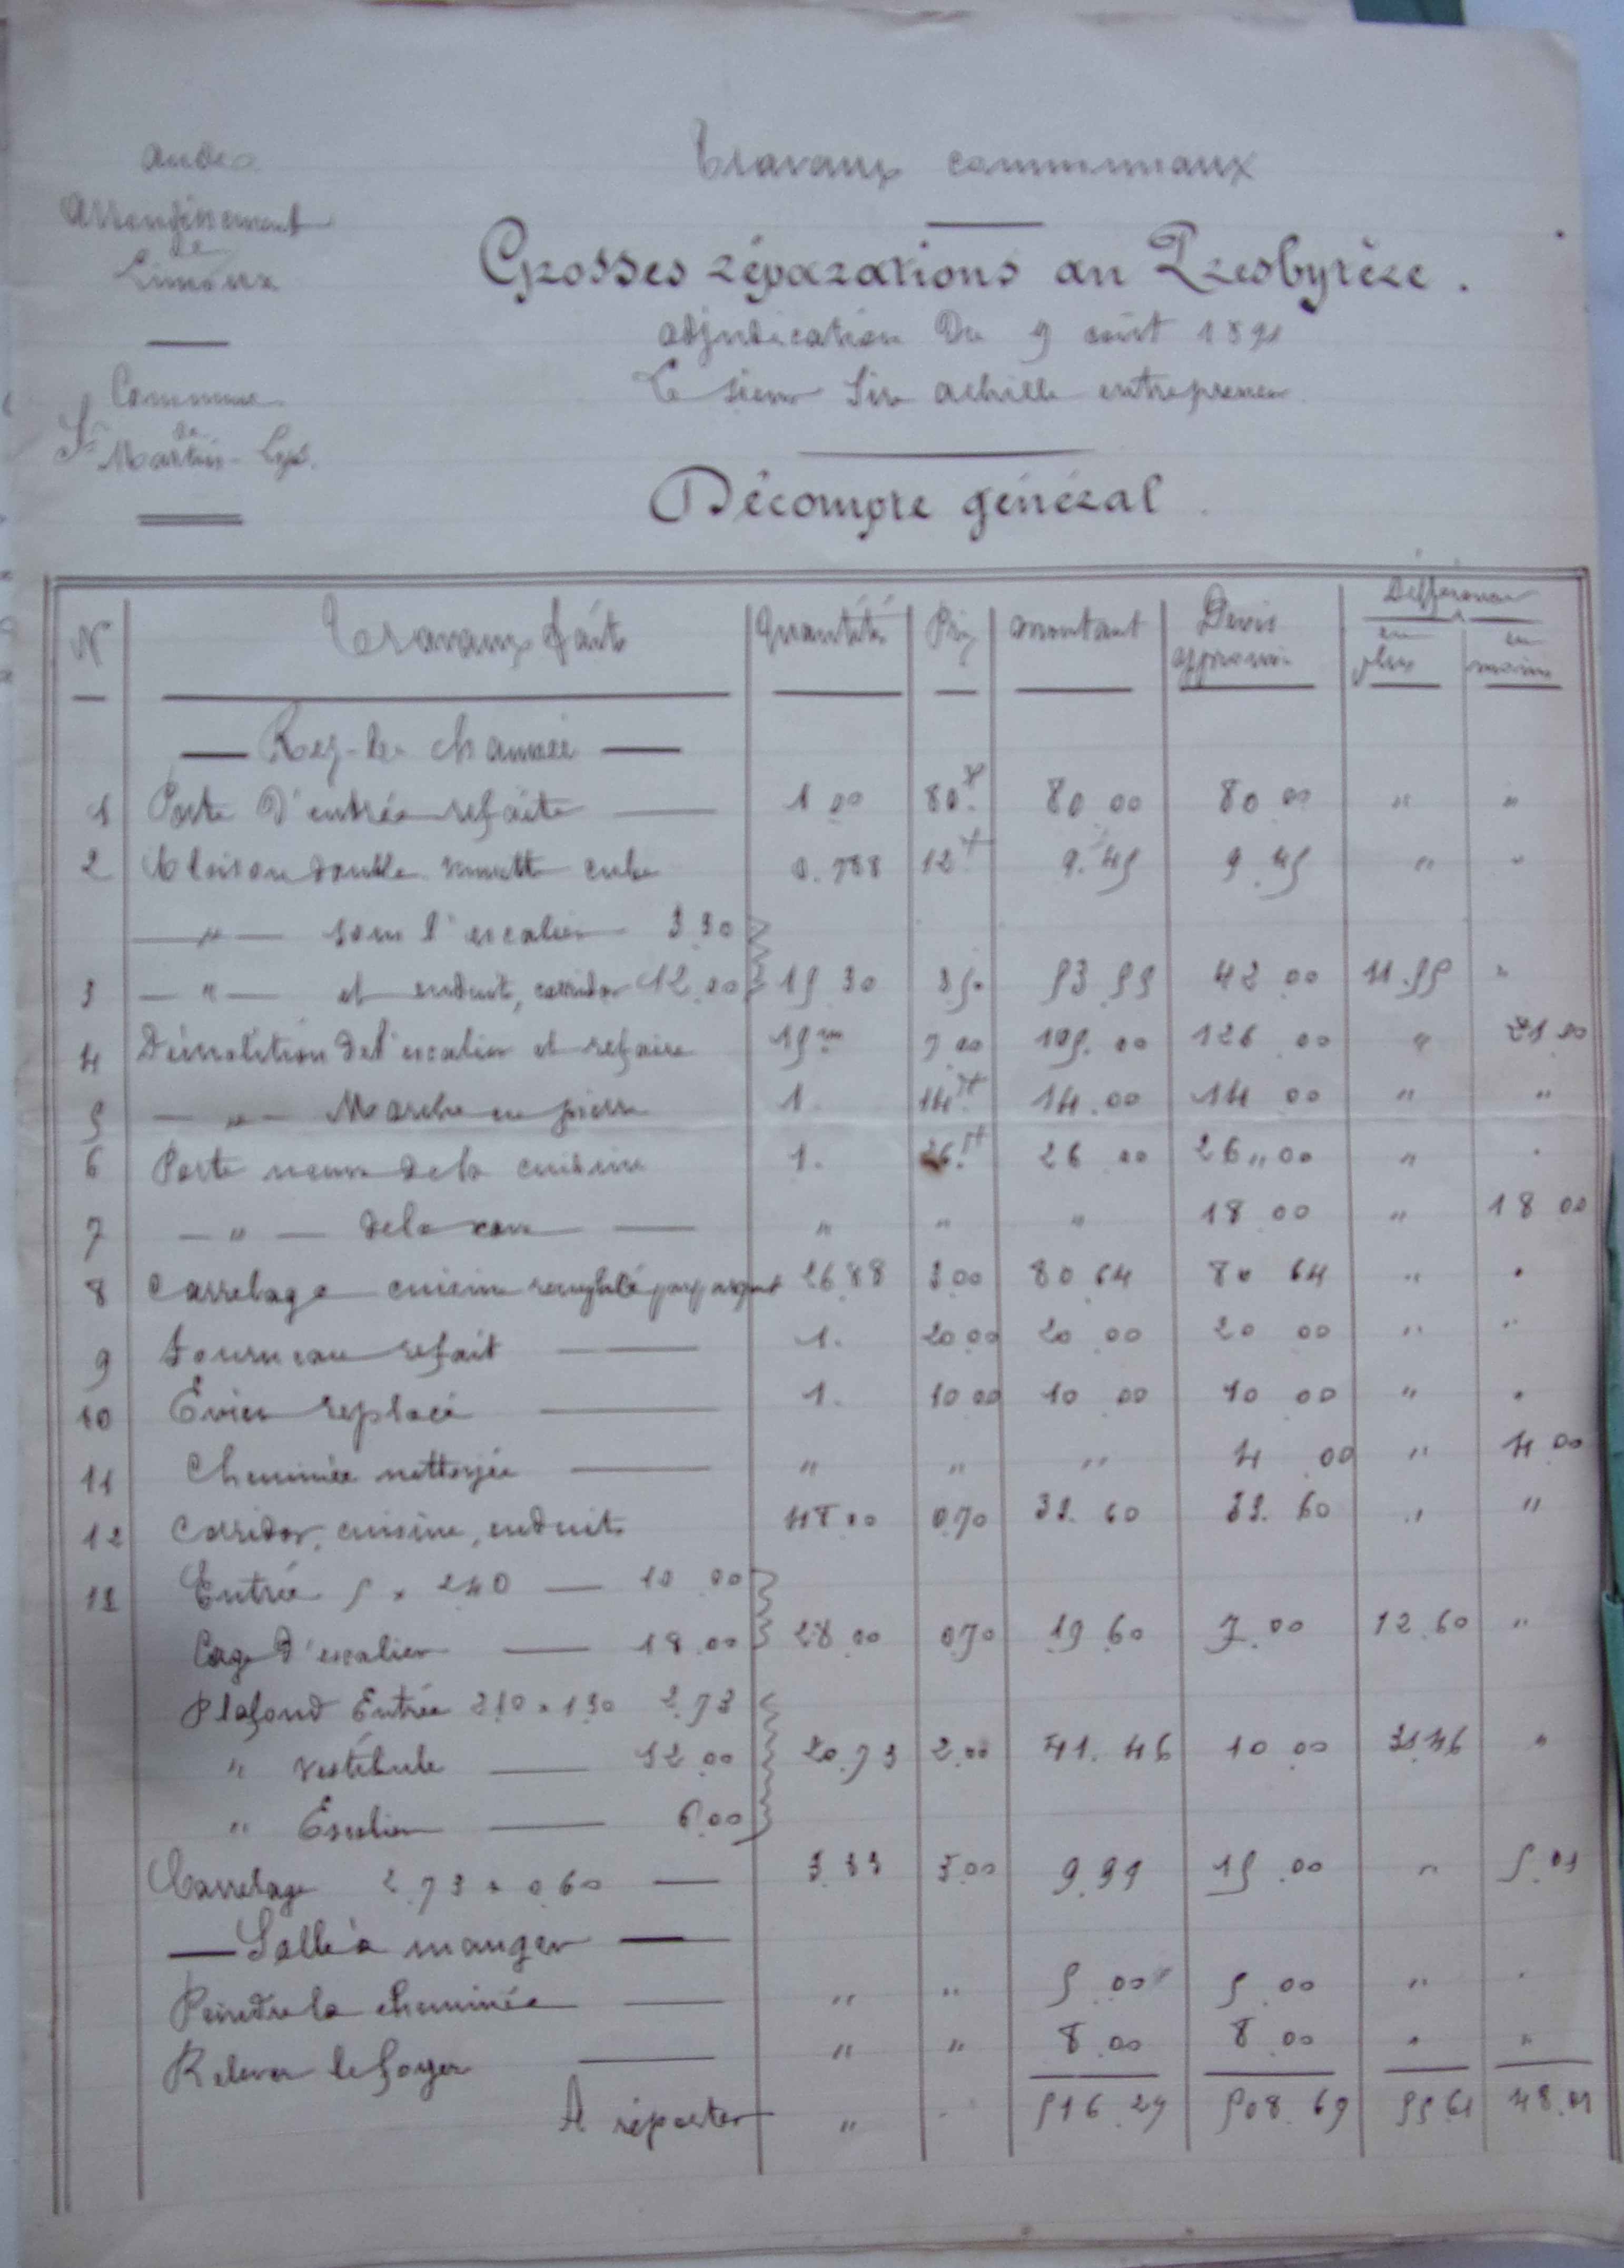 Aude
Arrondissement
de
Limoux
Commune
de
St Martin-Lys.
Travaux communaux
Grosses réparations au Presbytère.
Adjudication du 9 août 1891
Le sieur Achille entrepreneur
Décompte général
N° Travaux faits Quantités Prix montant Devis approuvé Différence en plus en moins
Rez-de chaussée
1 Porte d'entrée refaite 1 00 80 80 00 80 00 " "
2 Cloison double cube 0.788 12 9.45 9.45 " "
— " — sous l'escalier 3 30
3 — " — et enduit, corridor 12.00 15 30 3 50 53 55 42 00 11.55 "
4 Démolition de l'escalier et refaire 15 m 7 00 105.00 126 00 " 21.00
5 — " — Marche en pierre 1. 14 14.00 14 00 " "
6 Porte neuve de la cuisine 1. 26 26 00 26 00 " "
7 — " — de la cave " " " 18 00 " 18 00
8 Carrelage cuisine 26 88 3 00 80 64 80 64 " "
9 Fourneau refait 1. 20 00 20 00 20 00 " "
10 Evier replacé 1. 10 00 10 00 10 00 " "
11 Cheminée nettoyée " " " 4 00 " 4.00
12 Corridor, cuisine, enduits 48.00 0.70 33.60 33.60 " "
13 Entrée 5 × 2 40 — 10 00
Cage d'escalier — 18.00 28 00 0 70 19 60 7.00 12 60 "
Plafond Entrée 2.10 × 1 30 2.73
" vestibule — 12 00 20.73 2.00 41.46 10 00 31.46 "
" Escalier — 6.00
Carrelage 2.73 × 0 60 — 3.33 3.00 9.99 15.00 " 5.01
Salle à manger
Peindre la cheminée — " " 5.00 5.00 " "
Relever le foyer — " " 8.00 8.00 " "
A reporter " 516.29 508.69 55 61 48.01